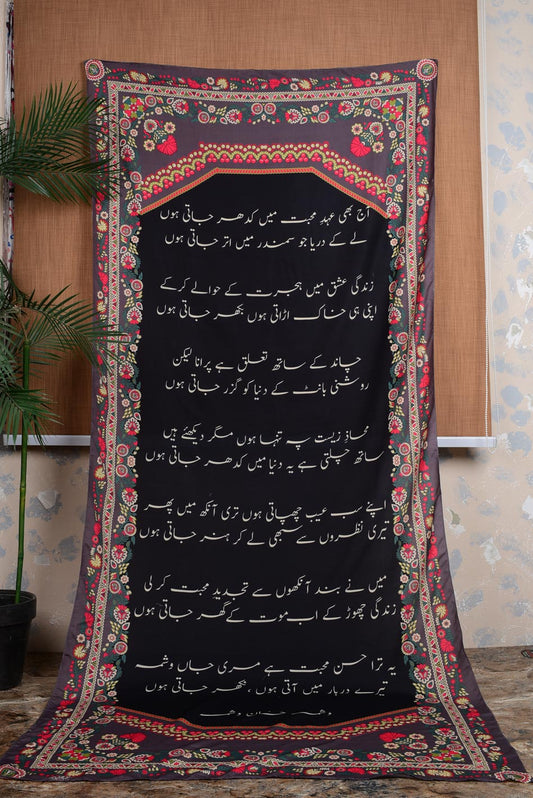 آج بھی عہدِ محبت میں کدھر جاتی ہوں
لے کے دریا جو سمندر میں اتر جاتی ہوں
زندگی عشق میں ہجرت کے حوالے کر کے
اپنی ہی خاک اڑاتی ہوں بکھر جاتی ہوں
چاند کے ساتھ تعلق ہے پرانا لیکن
روشنی بانٹ کے دنیا کو گزر جاتی ہوں
محاذِ زیست پہ تنہا ہوں مگر دیکھئے ہیں
ساتھ چلتی ہے یہ دنیا میں کدھر جاتی ہوں
اپنے سب عیب چھپاتی ہوں تری آنکھ میں پھر
تیری نظروں سے سبھی لے کر ہنر جاتی ہوں
میں نے بند آنکھوں سے تجدیدِ محبت کر لی
زندگی چھوڑ کے اب موت کے گھر جاتی ہوں
یہ ترا حسن محبت ہے مری جاں وشمہ
تیرے دربار میں آتی ہوں، نکھر جاتی ہوں